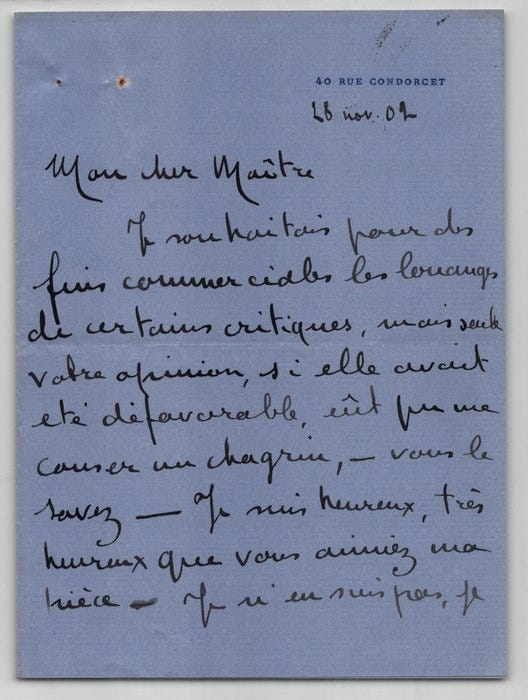 40 RUE CONDORCET
28 nov. 02
Mon cher Maître
Je souhaitais pour des
fins commerciales les louanges
de certains critiques, mais seule
votre opinion, si elle avait
été défavorable, eût pu me
causer un chagrin, — vous le
savez — Je suis heureux, très
heureux que vous aimiez ma
pièce — Je n'en suis pas, je